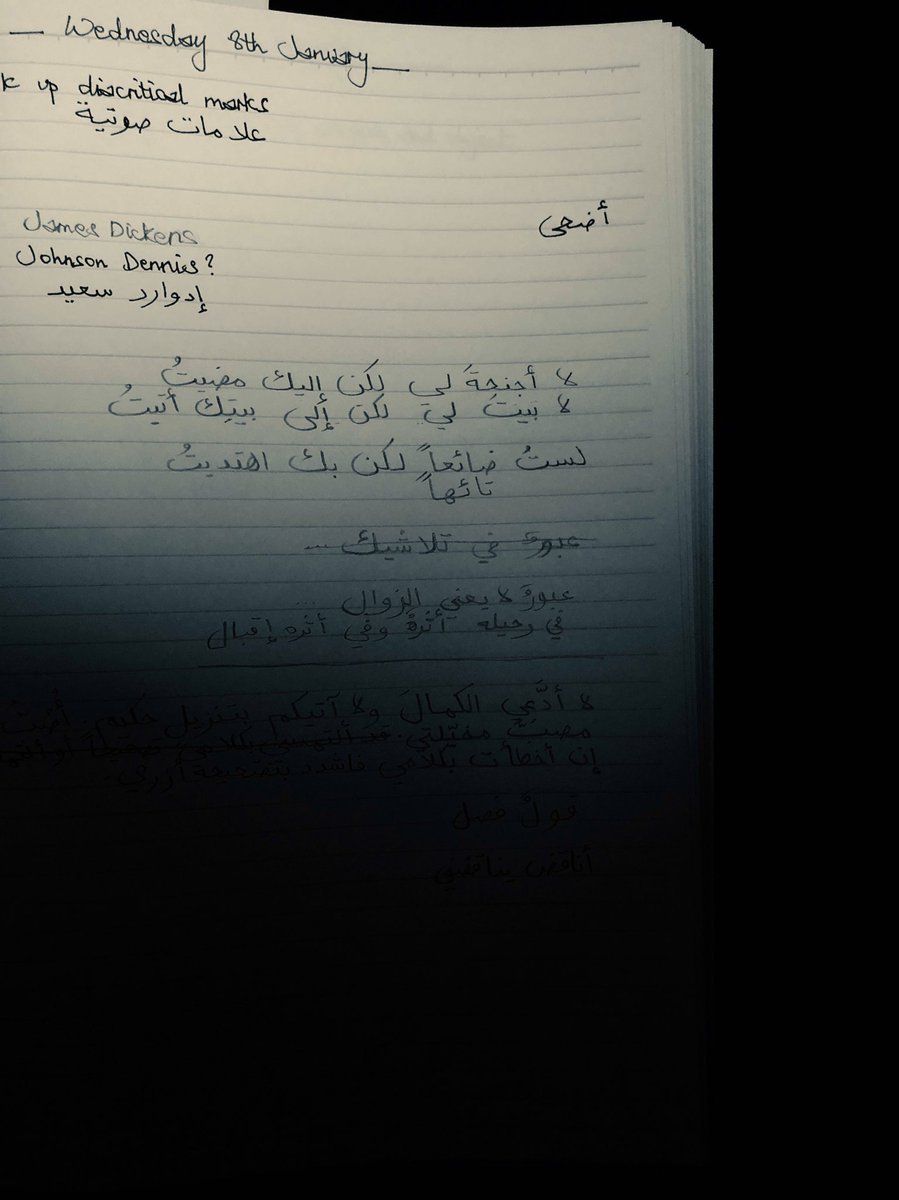 — Wednesday 8th January —
k up diacritical marks
علامات صوتية
أضحى
James Dickens
Johnson Dennies?
إدوارد سعيد
لا أجنحةَ لي لكن إليك مضيتُ
لا بيتَ لي لكن إلى بيتِك أتيتُ
لستُ ضائعاً لكن بك اهتديتُ
تائهاً
عبورٌ في تلاشيك ...
عبورٌ لا يعني الزوال ...
في رحيله أثرهُ وفي أثره إقبال
لا أدَّعي الكمالَ ولا آتيكم بتنزيلٍ حكيم.
إن أخطأت بكلامي فاشدد بتصحيحه أزري.
قولٌ فصل